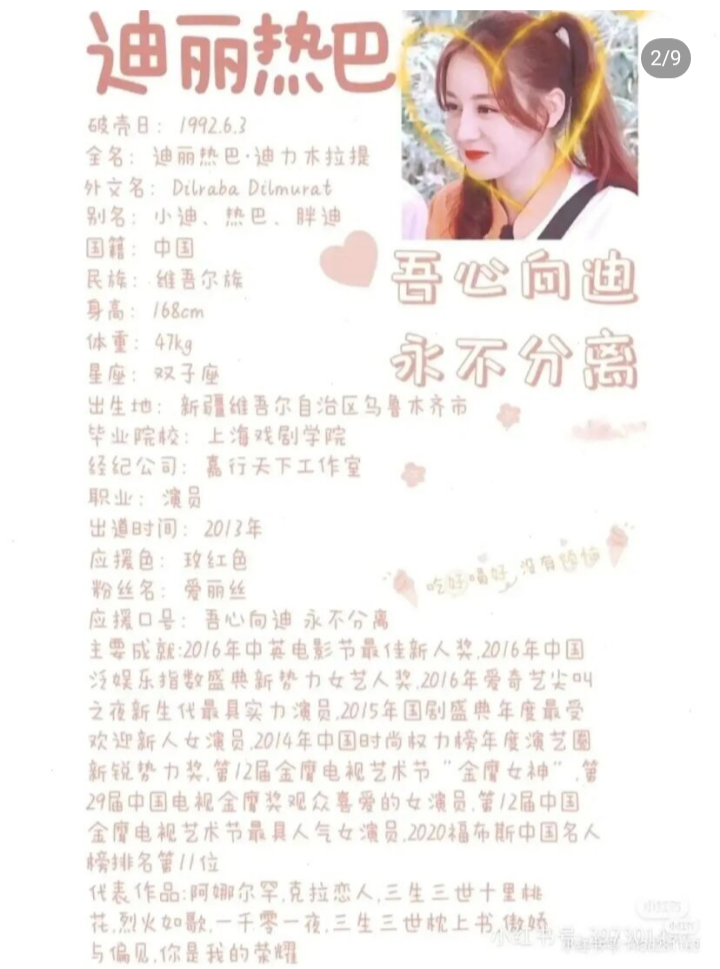 迪丽热巴
2/9
破壳日：1992.6.3
全名：迪丽热巴·迪力木拉提
外文名：Dilraba Dilmurat
别名：小迪、热巴、胖迪
国籍：中国
民族：维吾尔族
身高：168cm
体重：47kg
星座：双子座
吾心向迪
永不分离
出生地：新疆维吾尔自治区乌鲁木齐市
毕业院校：上海戏剧学院
经纪公司：嘉行天下工作室
职业：演员
出道时间：2013年
应援色：玫红色
粉丝名：爱丽丝
吃好喝好 没有烦恼
应援口号：吾心向迪 永不分离
主要成就:2016年中英电影节最佳新人奖,2016年中国
泛娱乐指数盛典新势力女艺人奖,2016年爱奇艺尖叫
之夜新生代最具实力演员,2015年国剧盛典年度最受
欢迎新人女演员,2014年中国时尚权力榜年度演艺圈
新锐势力奖,第12届金鹰电视艺术节“金鹰女神”,第
29届中国电视金鹰奖观众喜爱的女演员,第12届中国
金鹰电视艺术节最具人气女演员,2020福布斯中国名人
榜排名第11位
代表作品:阿娜尔罕,克拉恋人,三生三世十里桃
花,烈火如歌,一千零一夜,三生三世枕上书,傲娇
与偏见,你是我的荣耀
小红书
小红书号